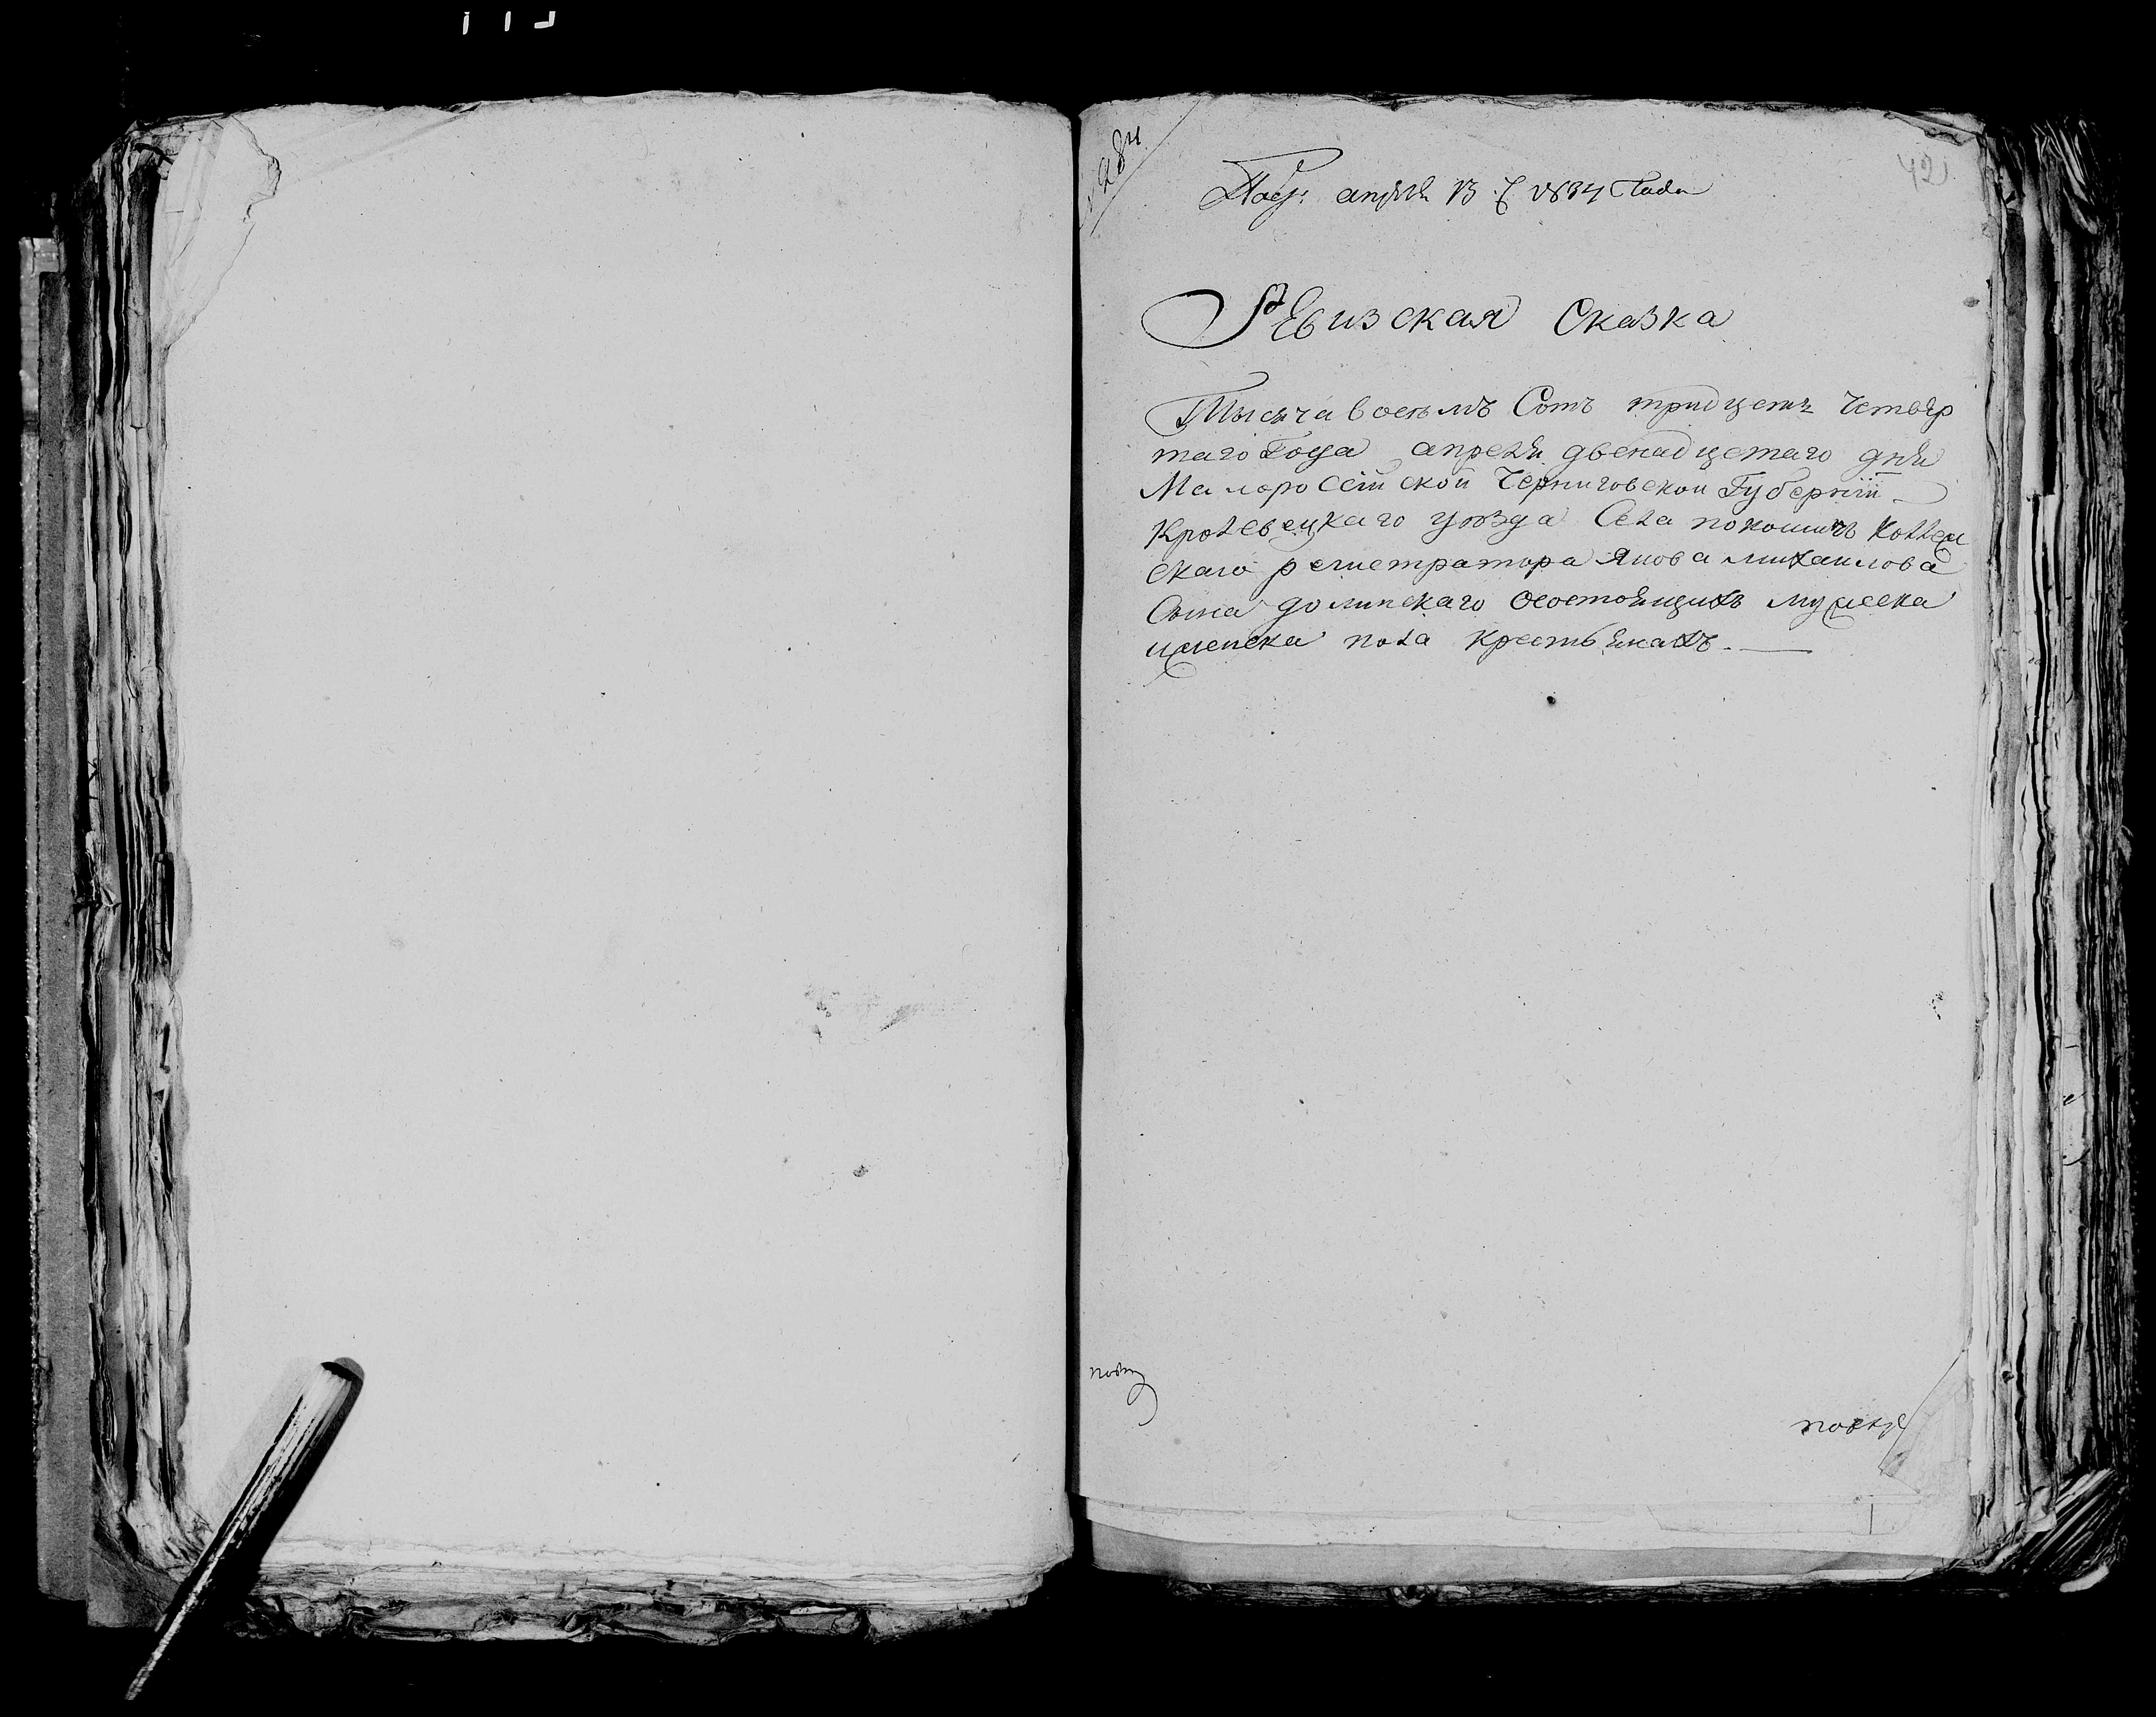 284
421
апреля 13 1834 Года
Ревизская Сказка
Тысяча восемъ Сотъ тридцетъ Четвер
таго Года апреля двенадцетаго дня
Малороссійской Черниговской Губерніи
Кролевецкаго уезда Села покошичъ Коллеж
скаго регистратора Якова михаилова
Сына долинскаго осостоящихъ мужеска
иженска пола крестьянахъ.